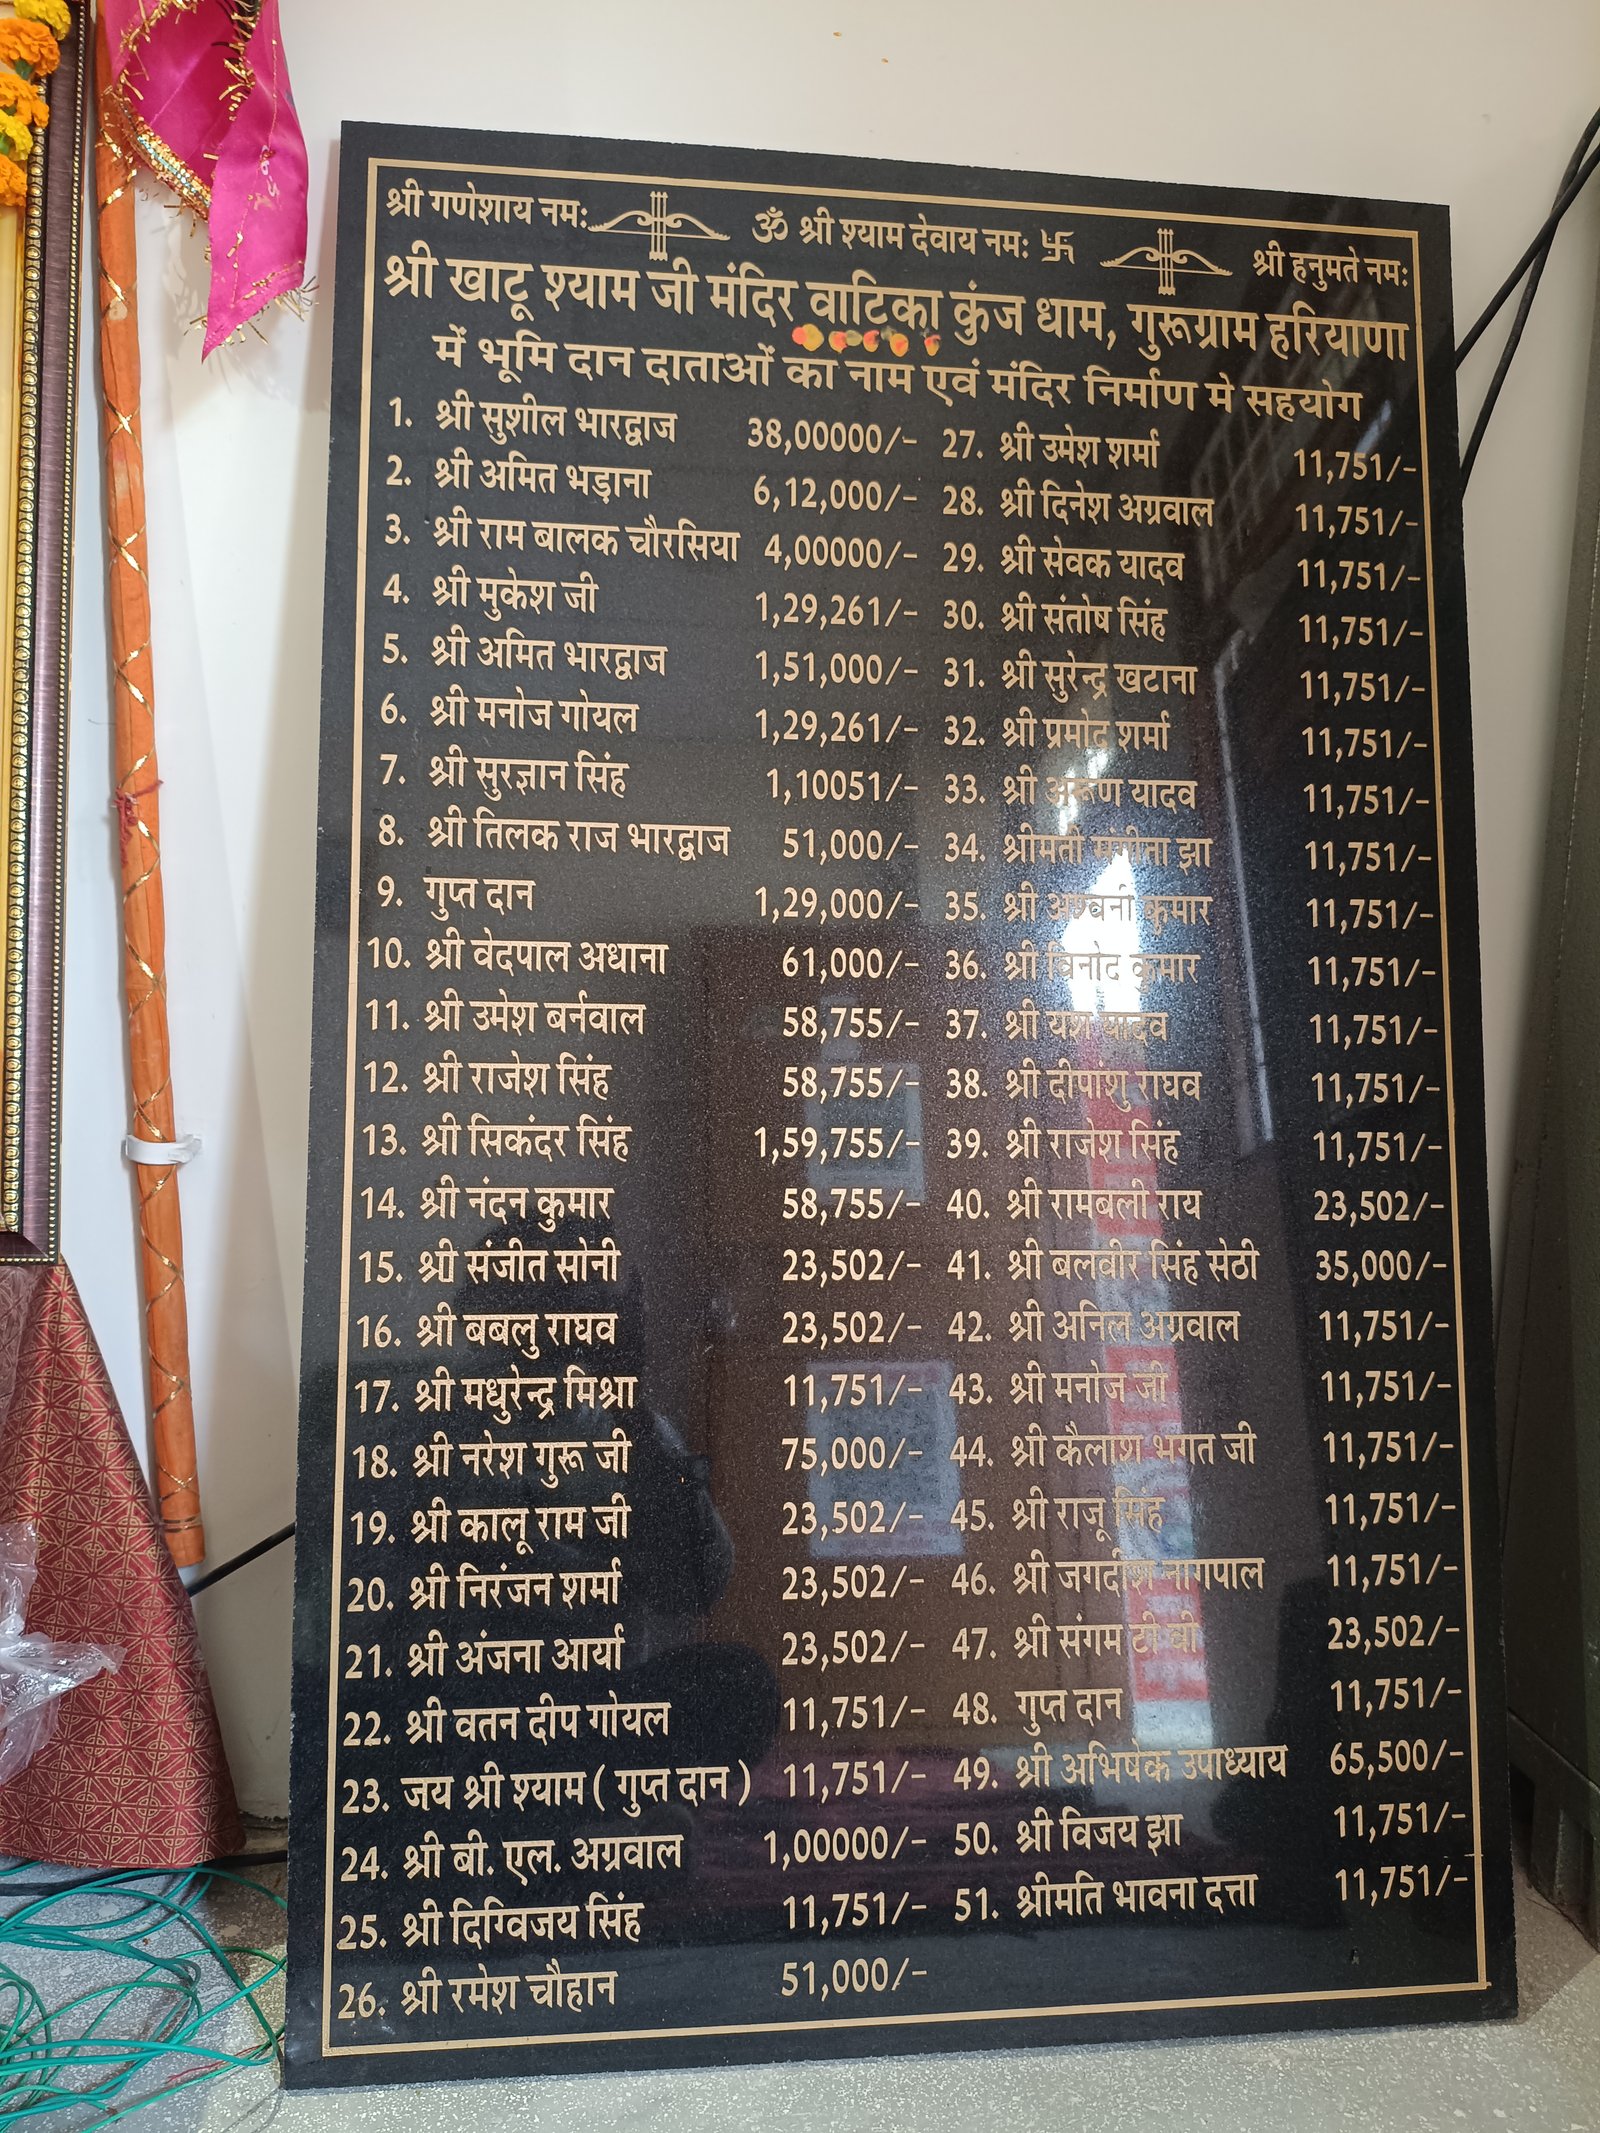 श्री गणेशाय नमः ॐ श्री श्याम देवाय नमः 卐 श्री हनुमते नमः
श्री खाटू श्याम जी मंदिर वाटिका कुंज धाम, गुरूग्राम हरियाणा
में भूमि दान दाताओं का नाम एवं मंदिर निर्माण मे सहयोग
1. श्री सुशील भारद्वाज 38,00000/-
2. श्री अमित भड़ाना 6,12,000/-
3. श्री राम बालक चौरसिया 4,00000/-
4. श्री मुकेश जी 1,29,261/-
5. श्री अमित भारद्वाज 1,51,000/-
6. श्री मनोज गोयल 1,29,261/-
7. श्री सुरज्ञान सिंह 1,10051/-
8. श्री तिलक राज भारद्वाज 51,000/-
9. गुप्त दान 1,29,000/-
10. श्री वेदपाल अधाना 61,000/-
11. श्री उमेश बर्नवाल 58,755/-
12. श्री राजेश सिंह 58,755/-
13. श्री सिकंदर सिंह 1,59,755/-
14. श्री नंदन कुमार 58,755/-
15. श्री संजीत सोनी 23,502/-
16. श्री बबलु राघव 23,502/-
17. श्री मधुरेन्द्र मिश्रा 11,751/-
18. श्री नरेश गुरू जी 75,000/-
19. श्री कालू राम जी 23,502/-
20. श्री निरंजन शर्मा 23,502/-
21. श्री अंजना आर्या 23,502/-
22. श्री वतन दीप गोयल 11,751/-
23. जय श्री श्याम ( गुप्त दान ) 11,751/-
24. श्री बी. एल. अग्रवाल 1,00000/-
25. श्री दिग्विजय सिंह 11,751/-
26. श्री रमेश चौहान 51,000/-
27. श्री उमेश शर्मा 11,751/-
28. श्री दिनेश अग्रवाल 11,751/-
29. श्री सेवक यादव 11,751/-
30. श्री संतोष सिंह 11,751/-
31. श्री सुरेन्द्र खटाना 11,751/-
32. श्री प्रमोद शर्मा 11,751/-
33. श्री अरूण यादव 11,751/-
34. श्रीमती झा 11,751/-
35. श्री अश्वनी कुमार 11,751/-
36. श्री विनोद कुमार 11,751/-
37. श्री यश यादव 11,751/-
38. श्री दीपांशु राघव 11,751/-
39. श्री राजेश सिंह 11,751/-
40. श्री रामबली राय 23,502/-
41. श्री बलवीर सिंह सेठी 35,000/-
42. श्री अनिल अग्रवाल 11,751/-
43. श्री मनोज जी 11,751/-
44. श्री कैलाश भगत जी 11,751/-
45. श्री राजू सिंह 11,751/-
46. श्री जगदीश नागपाल 11,751/-
47. श्री संगम टी वी 23,502/-
48. गुप्त दान 11,751/-
49. श्री अभिषेक उपाध्याय 65,500/-
50. श्री विजय झा 11,751/-
51. श्रीमति भावना दत्ता 11,751/-